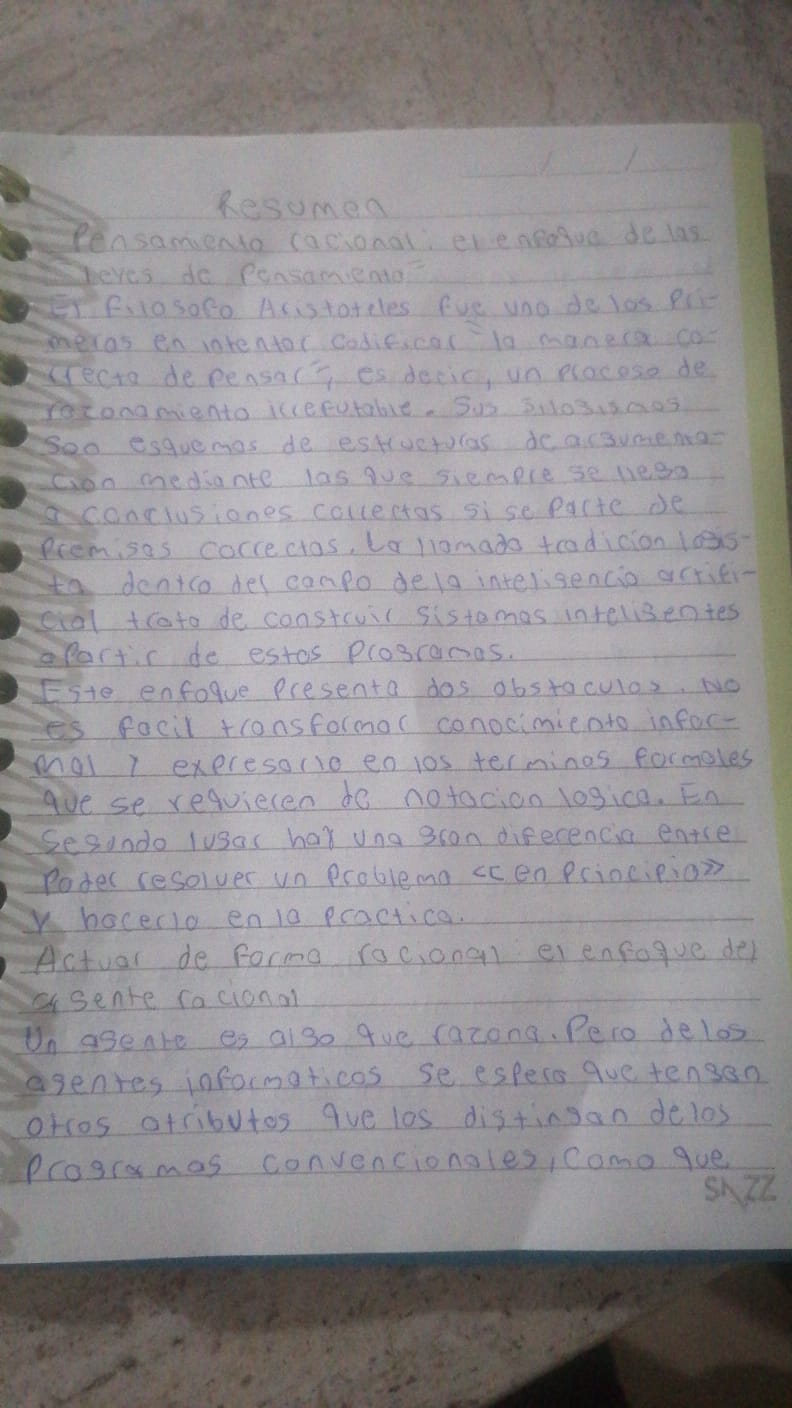 Resumen
Pensamiento racional: el enfoque de las
"leyes de Pensamiento"
El filosofo Aristoteles fue uno de los Pri-
meros en intentar codificar "la manera co-
rrecta de pensar", es decir, un proceso de
razonamiento irrefutable. Sus silogismos
Son esquemas de estructuras de argumenta-
cion mediante las que siempre se llega
a conclusiones correctas si se parte de
Premisas correctas. La llamada tradicion logis-
ta dentro del campo de la inteligencia artifi-
cial trato de construir sistemas inteligentes
apartir de estos Programas.
Este enfoque Presenta dos obstaculos. No
es facil transformar conocimiento infor-
mal y expresarlo en los terminos formales
que se requieren de notacion logica. En
Segundo lugar hay una gran diferencia entre
Poder resolver un Problema << en Principio>>
y hacerlo en la Practica.
Actuar de forma racional: el enfoque del
agente racional
Un agente es algo que razona. Pero de los
agentes informaticos se espera que tengan
otros atributos que los distingan de los
Programas convencionales, como que
SAZZ